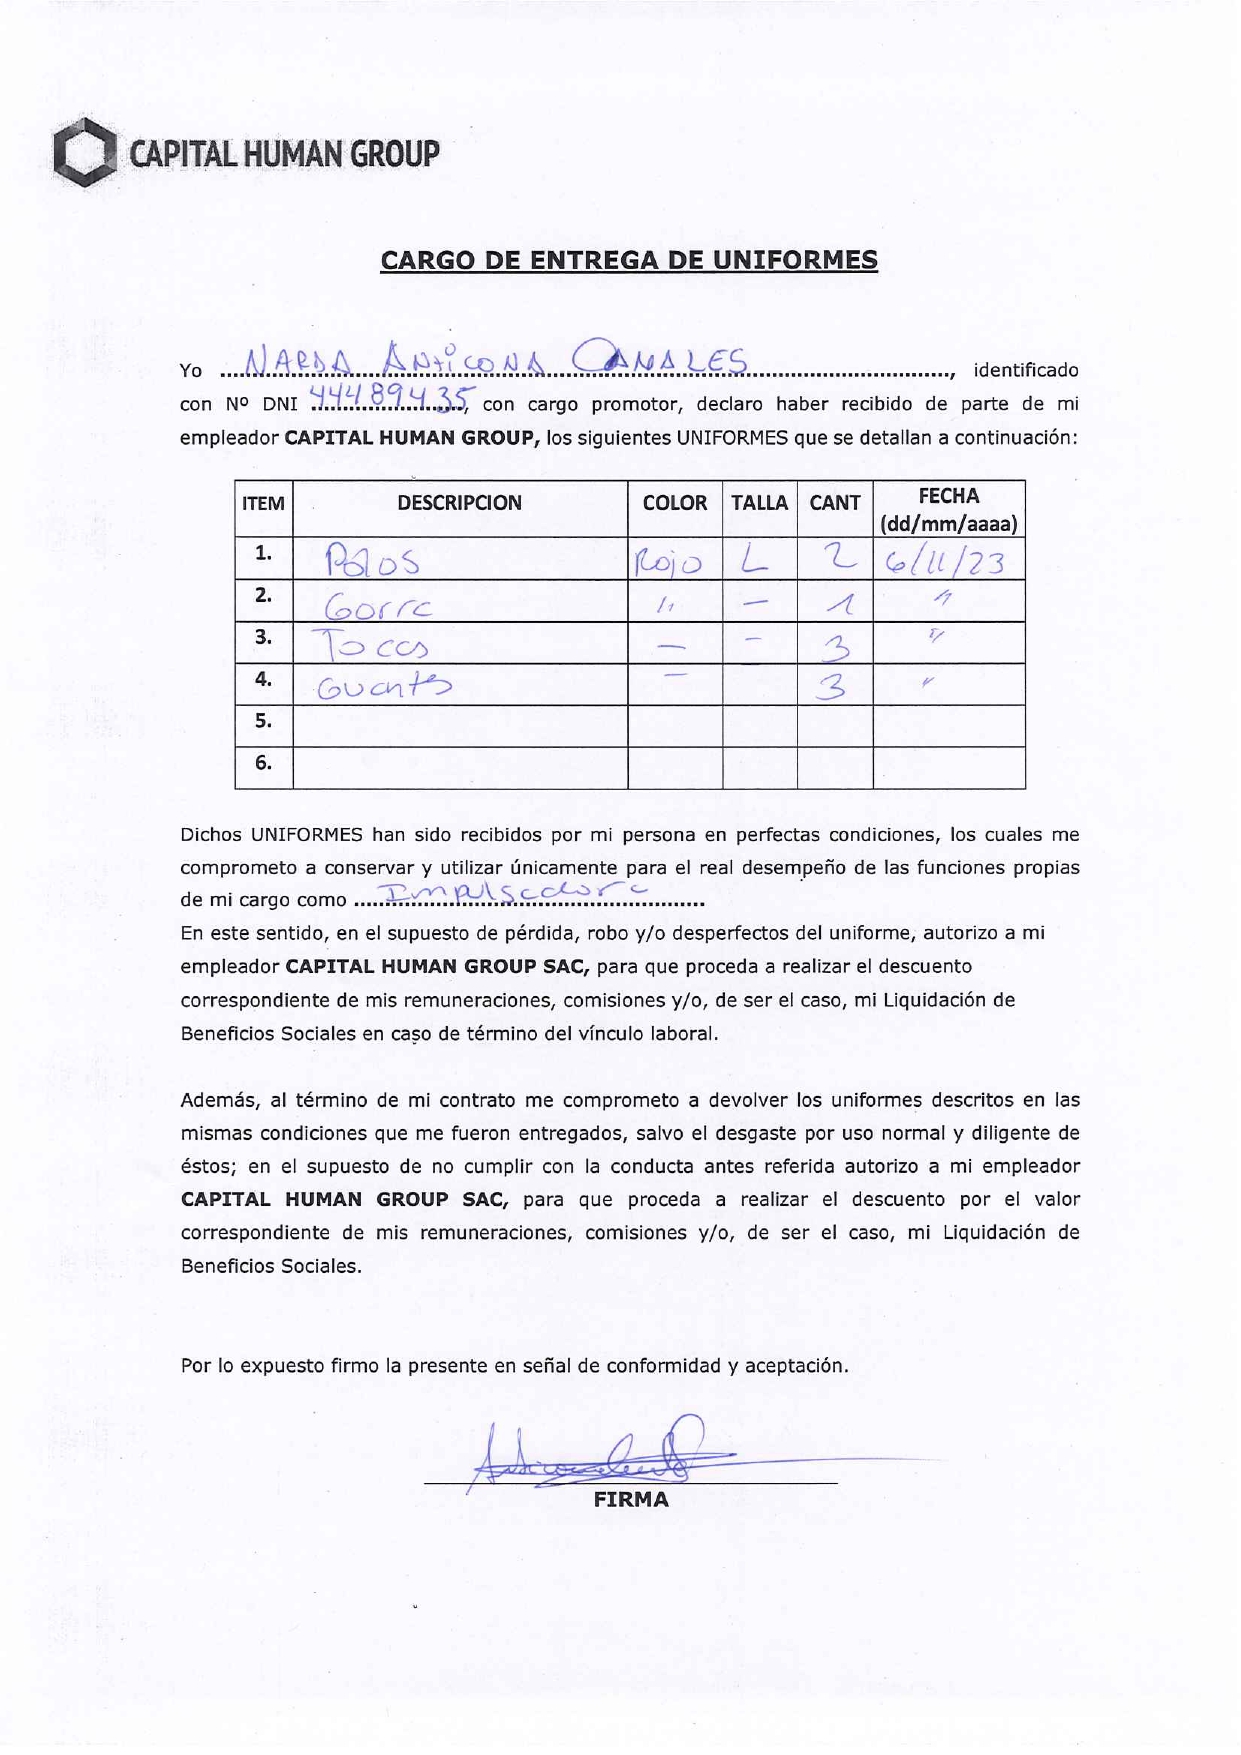 CAPITAL HUMAN GROUP
CARGO DE ENTREGA DE UNIFORMES
Yo ....NARDA ANTICONA CANALES...., identificado
con Nº DNI 444894 35, con cargo promotor, declaro haber recibido de parte de mi
empleador CAPITAL HUMAN GROUP, los siguientes UNIFORMES que se detallan a continuación:
ITEM DESCRIPCION COLOR TALLA CANT FECHA (dd/mm/aaaa)
1. Polos Rojo L 2 6/11/23
2. Gorra " — 1 "
3. Tocas — - 3 "
4. Guantes — 3 "
5.
6.
Dichos UNIFORMES han sido recibidos por mi persona en perfectas condiciones, los cuales me
comprometo a conservar y utilizar únicamente para el real desempeño de las funciones propias
de mi cargo como ....Impulsadora....
En este sentido, en el supuesto de pérdida, robo y/o desperfectos del uniforme, autorizo a mi
empleador CAPITAL HUMAN GROUP SAC, para que proceda a realizar el descuento
correspondiente de mis remuneraciones, comisiones y/o, de ser el caso, mi Liquidación de
Beneficios Sociales en caso de término del vínculo laboral.
Además, al término de mi contrato me comprometo a devolver los uniformes descritos en las
mismas condiciones que me fueron entregados, salvo el desgaste por uso normal y diligente de
éstos; en el supuesto de no cumplir con la conducta antes referida autorizo a mi empleador
CAPITAL HUMAN GROUP SAC, para que proceda a realizar el descuento por el valor
correspondiente de mis remuneraciones, comisiones y/o, de ser el caso, mi Liquidación de
Beneficios Sociales.
Por lo expuesto firmo la presente en señal de conformidad y aceptación.
FIRMA